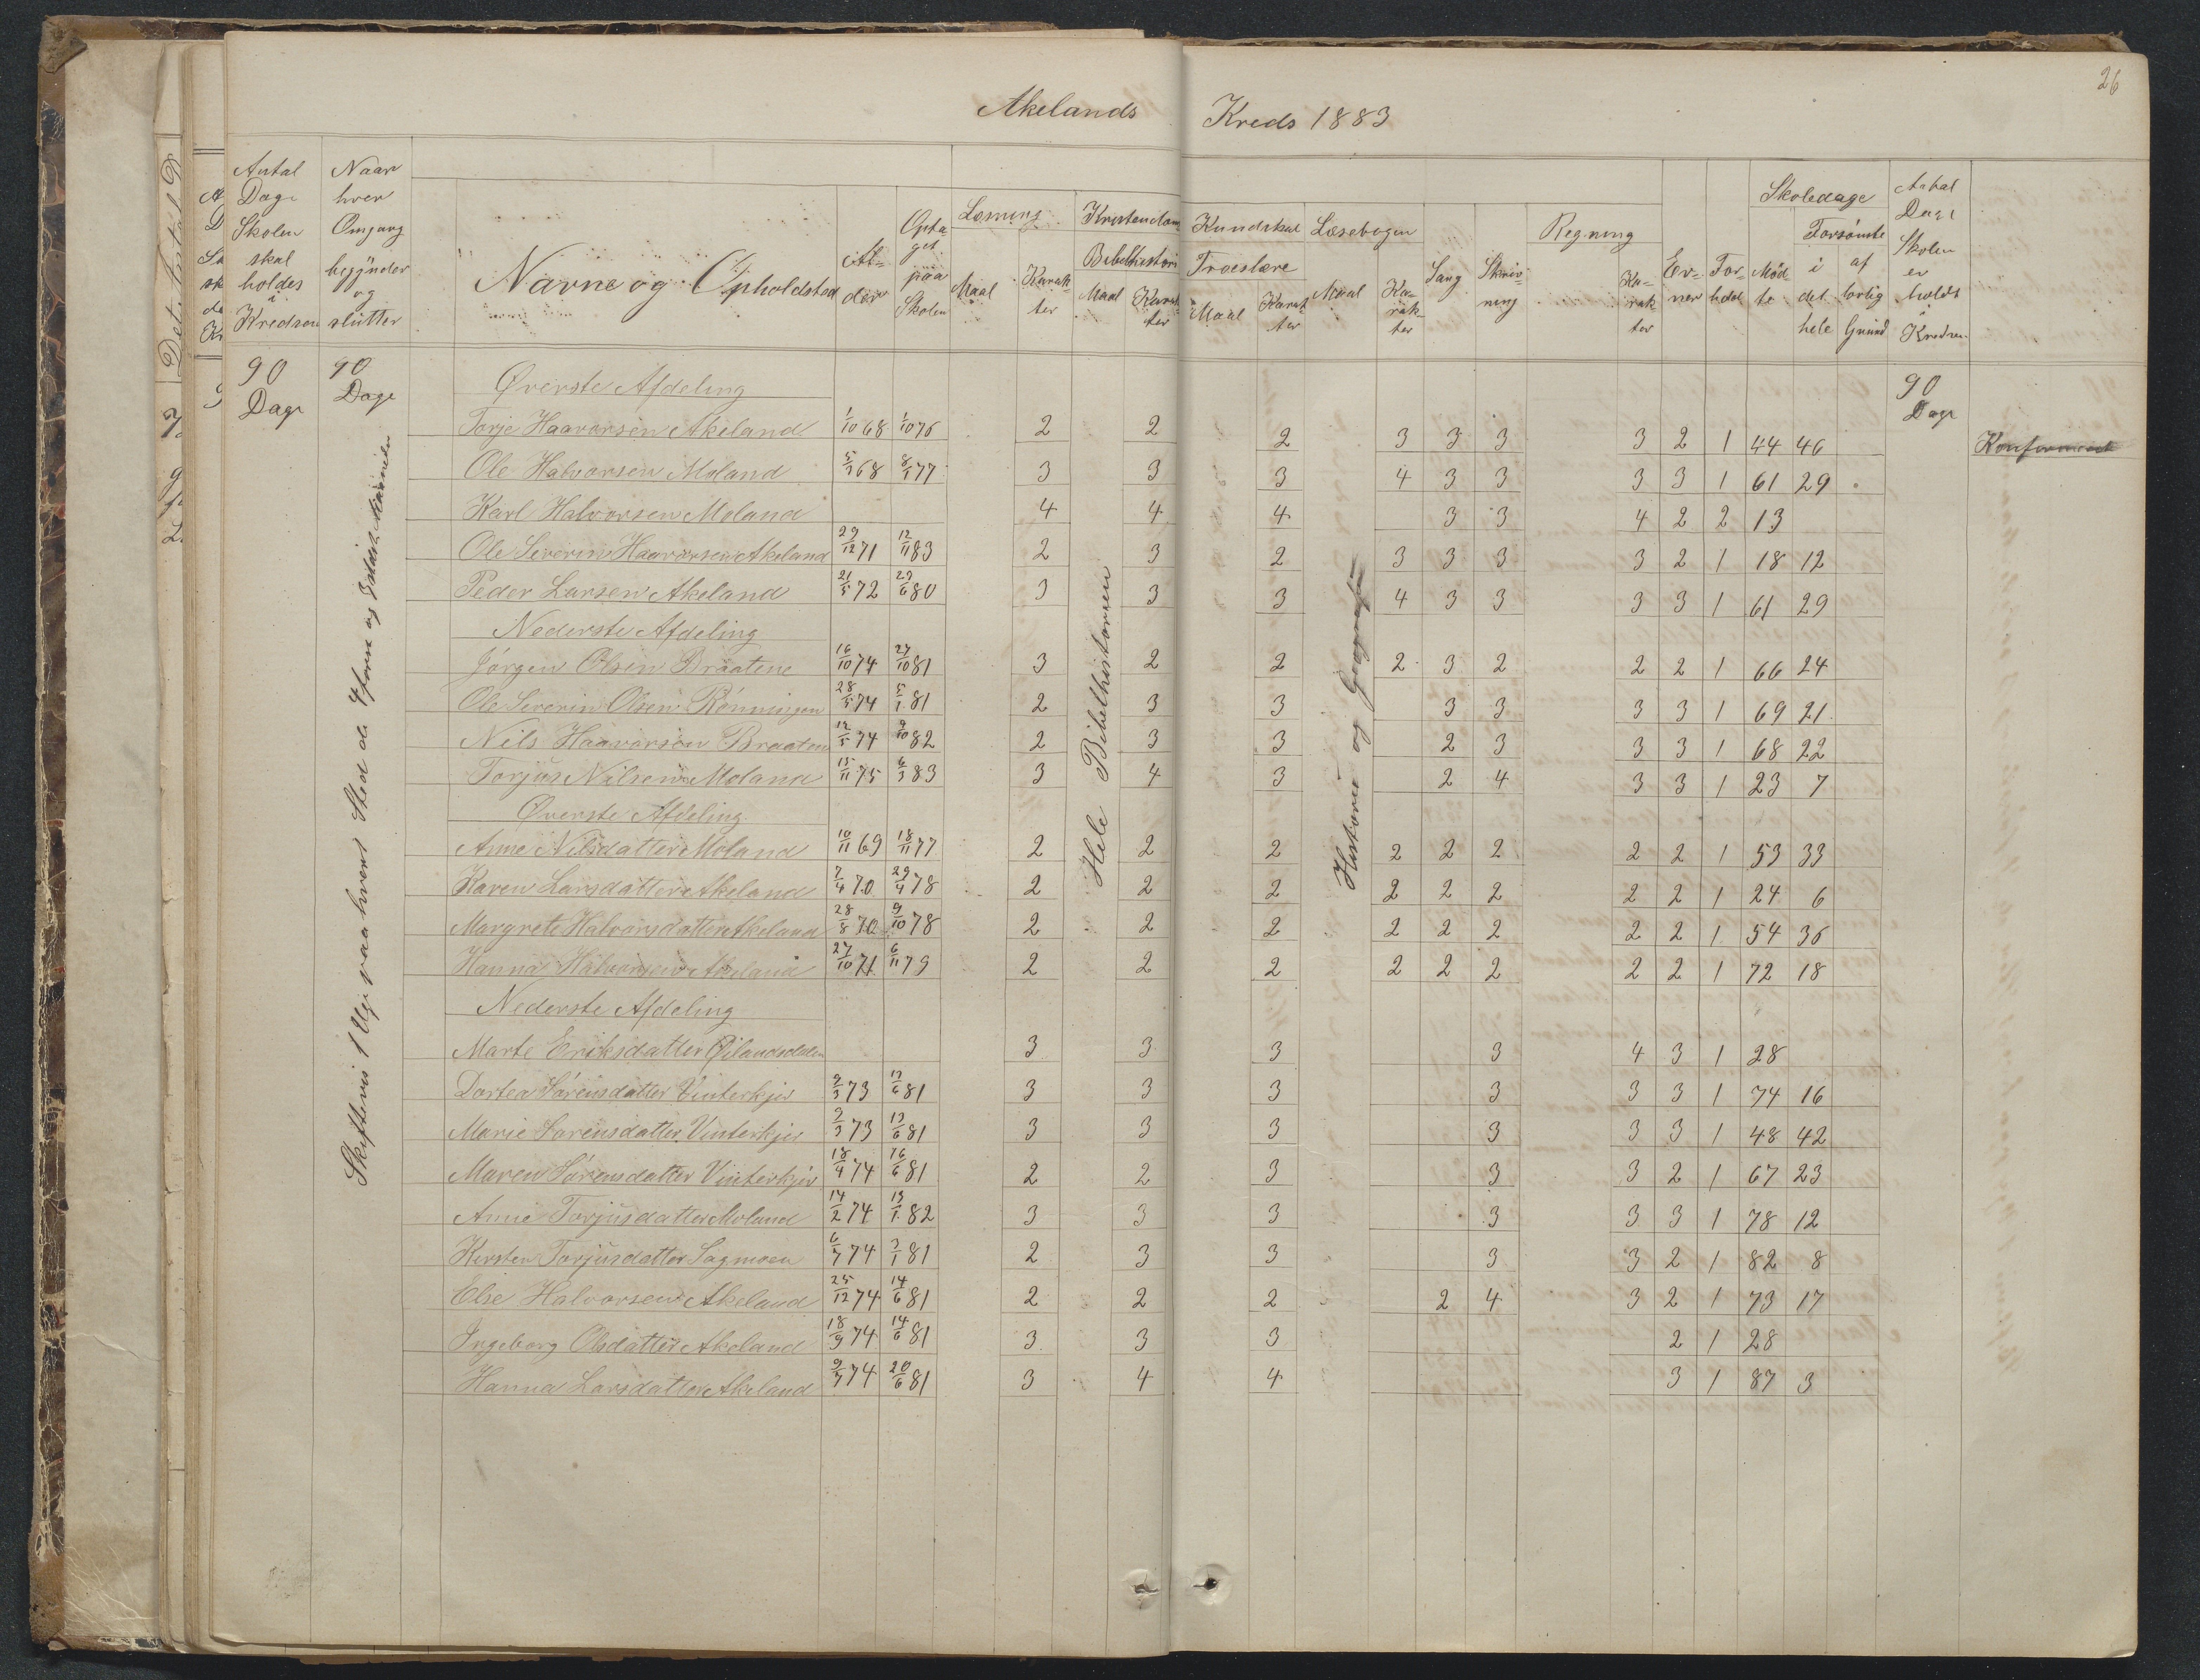 26
Akelands Kreds 1883
Antal Dage Skolen skal holdes i Kredsen
Naar hver Omgang begynder og slutter
Navne og Opholdsted
Alder
Optaget paa Skolen
Læsning
Maal Karakter
Kristendoms Kundskab
Bibelhistorie
Maal Karakter
Troeslære
Maal Karakter
Læsebogen
Maal Karakter
Sang
Skrivning
Regning
Karakter
Evner
Forhold
Skoledage
Mødte
Forsømte
i det hele
af lovlig Grund
Antal Dage Skolen er holdt i Kredsen
90 Dage
90 Dage
90 Dage
Skiftevis 1 Uge paa hvert Sted da
Hele Bibelhistorien
Historie og Geografi
Øverste Afdeling
Torje Haavorsen Akeland 1/10 68 1/10 76 2 2 2 3 3 3 3 2 1 44 46 Konfirmeret
Ole Halvorsen Moland 5/7 68 8/1 77 3 3 3 4 3 3 3 3 1 61 29
Karl Halvorsen Moland 4 4 4 3 3 4 2 2 13
Ole Severin Haavorsen Akeland 29/12 71 12/11 83 2 3 2 3 3 3 3 2 1 18 12
Peder Larsen Akeland 21/5 72 29/6 80 3 3 3 4 3 3 3 3 1 61 29
Nederste Afdeling
Jörgen Olsen Braatene 16/10 74 27/10 81 3 2 2 2 3 2 2 2 1 66 24
Ole Severin Olsen Rönningen 28/5 74 5/1 81 2 3 3 3 3 3 3 1 69 21
Nils Haavorsen Braaten 12/5 74 9/10 82 2 3 3 2 3 3 3 1 68 22
Torjus Nilsen Moland 15/11 75 6/3 83 3 4 3 2 4 3 3 1 23 7
Øverste Afdeling
Anne Nilsdatter Moland 10/11 69 18/11 77 2 2 2 2 2 2 2 2 1 53 33
Karen Larsdatter Akeland 7/4 70 29/4 78 2 2 2 2 2 2 2 2 1 24 6
Margrete Halvorsdatter Akeland 28/8 70 9/10 78 2 2 2 2 2 2 2 2 1 54 36
Hanna Halvorsen Akeland 27/10 71 6/11 79 2 2 2 2 2 2 2 2 1 72 18
Nederste Afdeling
Marte Eriksdatter Øilandsdalen 3 3 3 3 4 3 1 28
Dortea Sörensdatter Vinterkjer 2/3 73 13/6 81 3 3 3 3 3 3 1 74 16
Marie Sörensdatter Vinterkjer 2/3 73 13/6 81 3 3 3 3 3 3 1 48 42
Maren Sörensdatter Vinterkjer 18/4 74 16/6 81 2 2 3 3 3 2 1 67 23
Anne Torjusdatter Moland 14/2 74 13/1 82 3 3 3 3 3 3 1 78 12
Kirsten Torjusdatter Sagmoen 6/7 74 3/1 81 2 3 3 3 3 2 1 82 8
Else Halvorsen Akeland 25/12 74 14/6 81 2 2 2 2 4 3 2 1 73 17
Ingeborg Olsdatter Akeland 18/9 74 14/6 81 3 3 3 2 1 28
Hanna Larsdatter Akeland 9/7 74 20/6 81 3 4 4 3 1 87 3